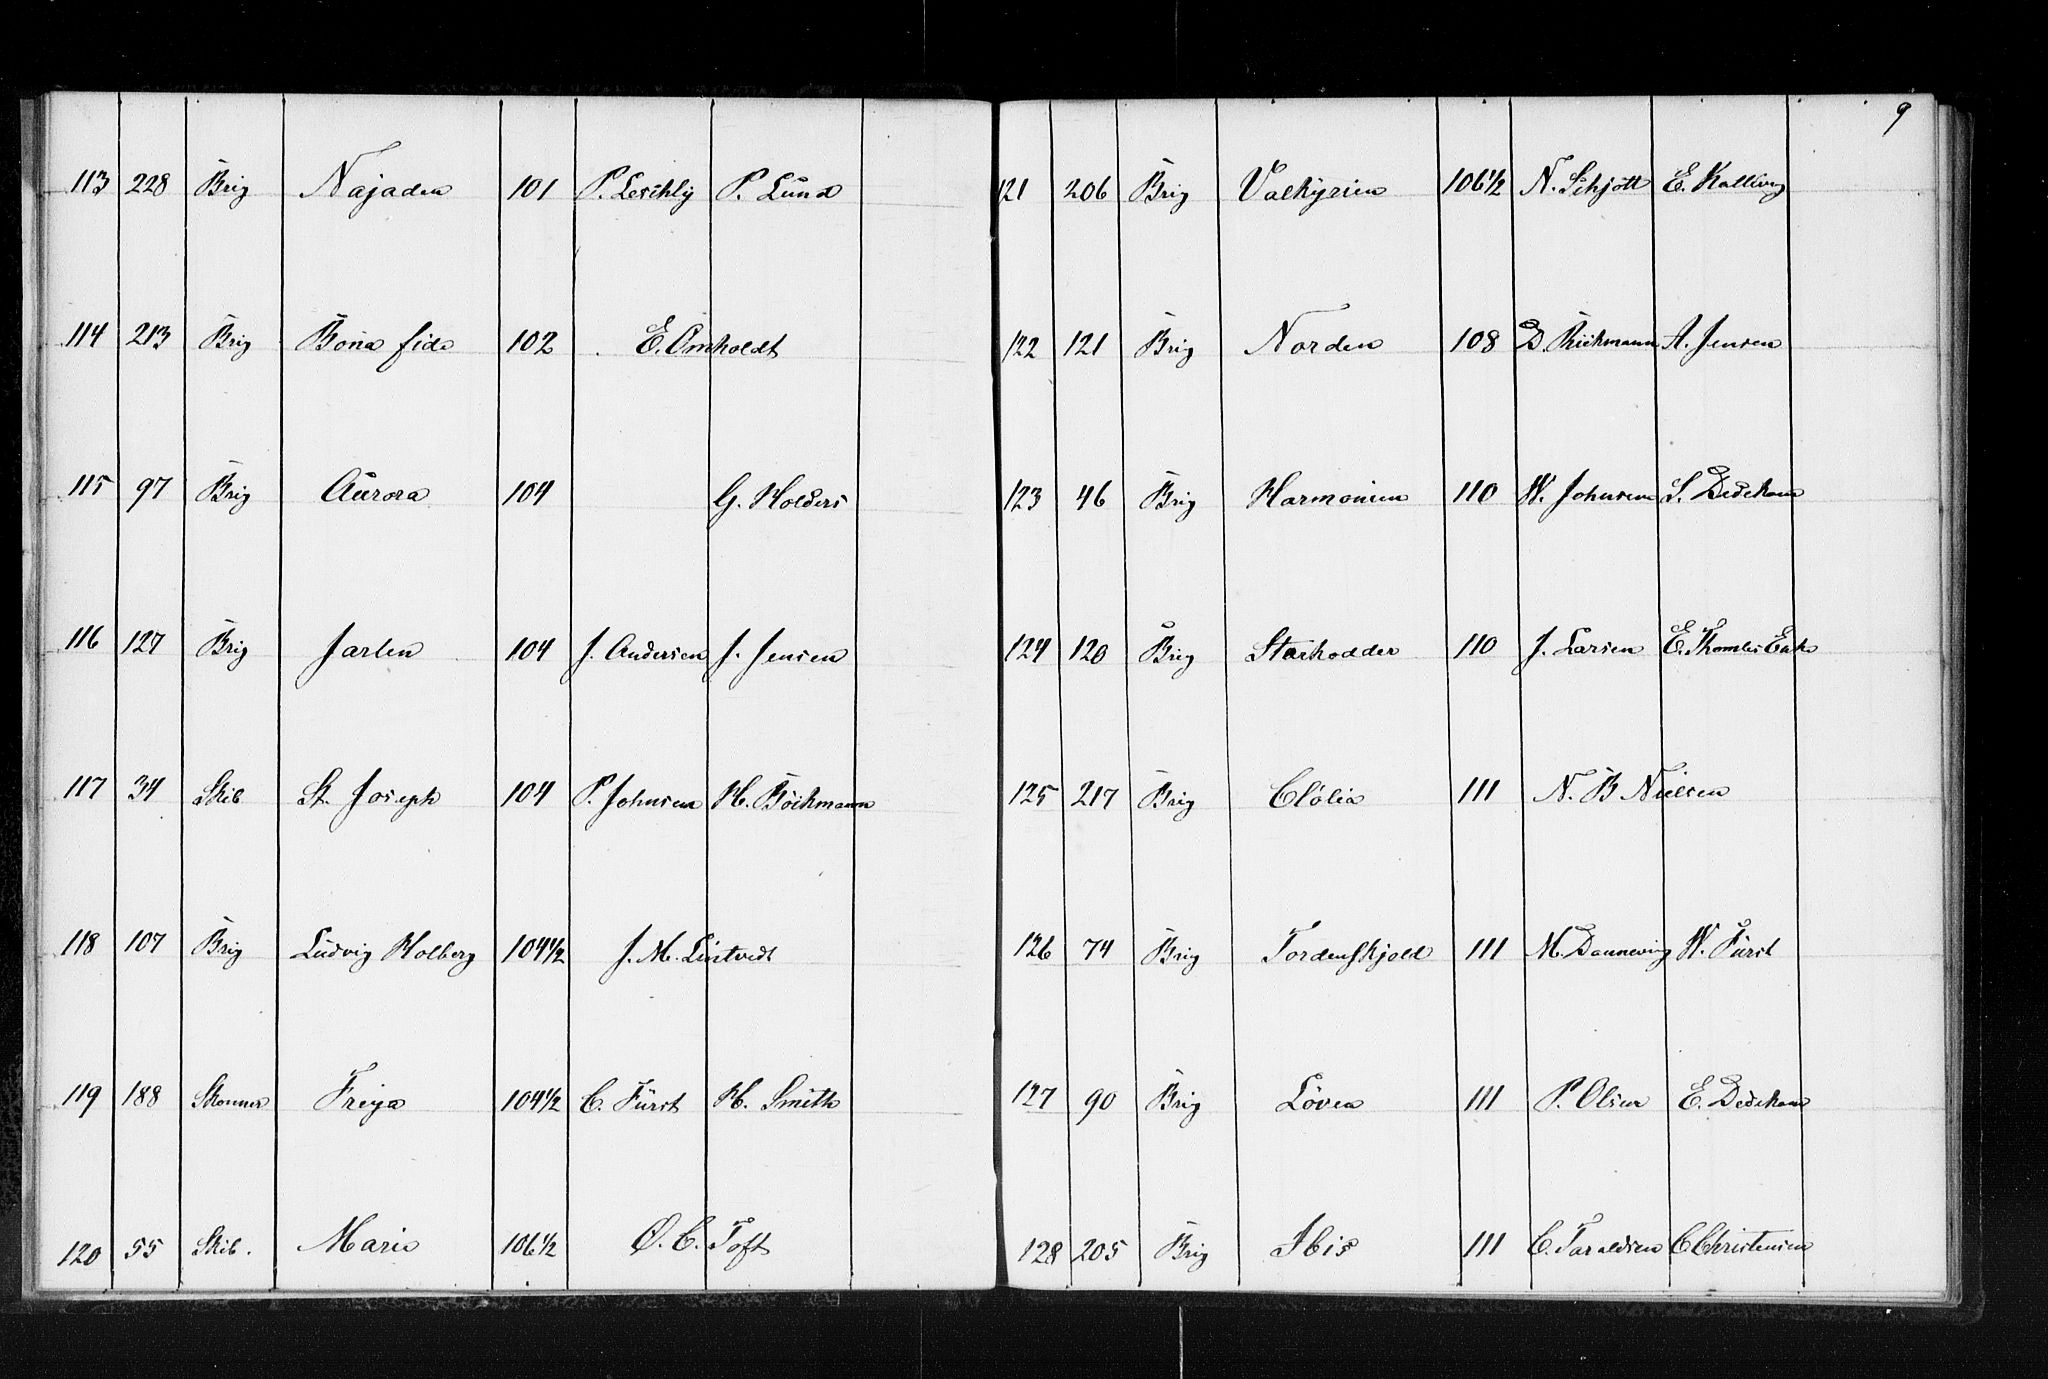 113 228 Brig Najaden 101 P. Leschly P. Lund
114 213 Brig Bona fide 102 E. Omholdt
115 97 Brig Aurora 104 G. Holders
116 127 Brig Jarlen 104 J. Andersen J. Jensen
117 34 Skib St. Joseph 104 P. Johnsen H. Böckmann
118 107 Brig Ludvig Holberg 104½ J. M. Lintvedt
119 188 Skonner Freya 104½ C. Fürst H. Smith
120 55 Skib. Marie 106½ O. C. Toft
9
121 206 Brig Valkyrien 106½ N. Schjött E. Kallevig
122 121 Brig Norden 108 D. A. Jensen
123 46 Brig Harmonien 110 W. Johnsen S. Dedekam
124 120 Brig Starkodder 110 J. Larsen E. Thomles Enke
125 217 Brig Clölia 111 N. B Nielsen
126 74 Brig Tordenskjold 111 M. Dannevig W. Fürst
127 90 Brig Löven 111 P. Olsen E. Dedekam
128 205 Brig Ibis 111 C. Taraldsen C Christensen